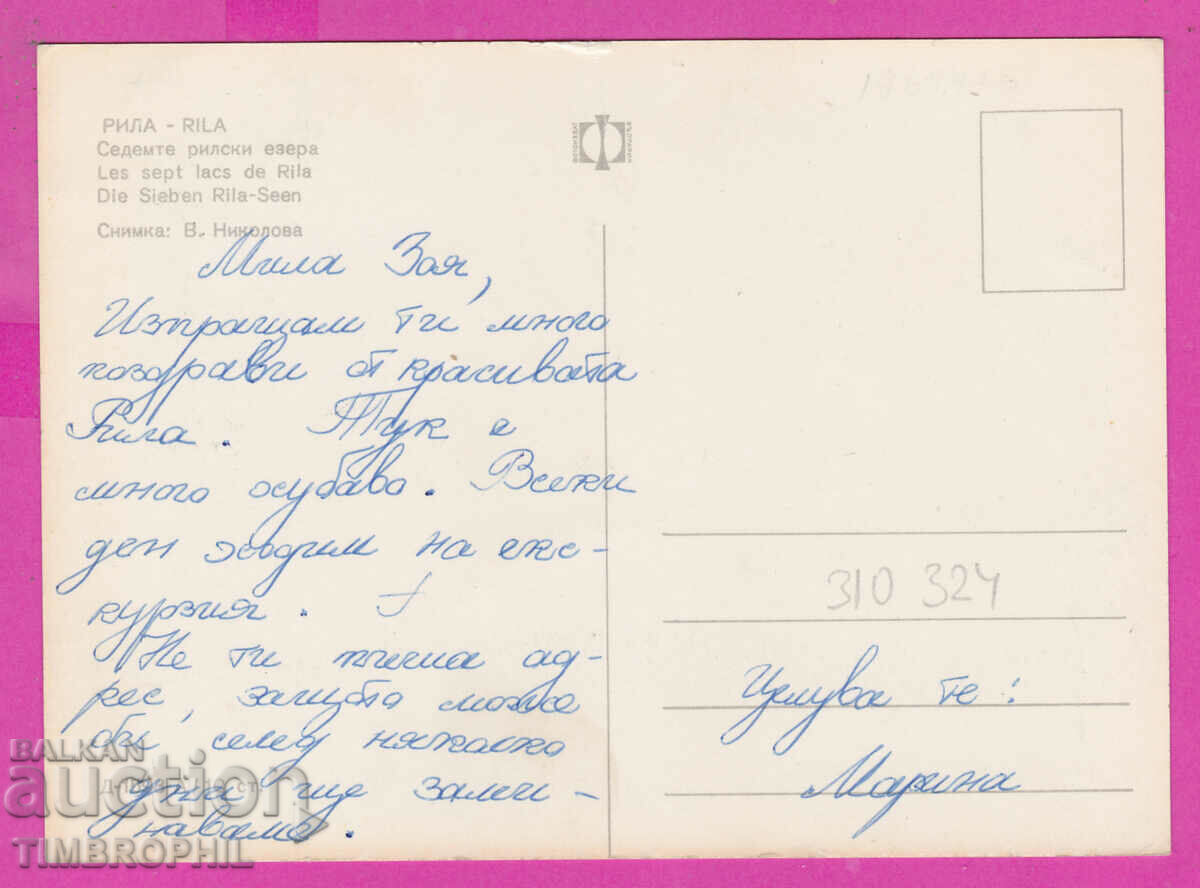 РИЛА - RILA
Седемте рилски езера
Les sept lacs de Rila
Die Sieben Rila-Seen
Снимка: В. Николова
Мила Зоя,
Изпращам ти много
поздрави от красивата
Рила. Тук е
много хубаво. Всеки
ден ходим на екс-
курзия.
Не ти пиша ад-
рес, защото може
би след няколко
дена ще зами-
наваме.
310 324
Целува те:
Марина
BALKAN
auction
TIMBROPHIL